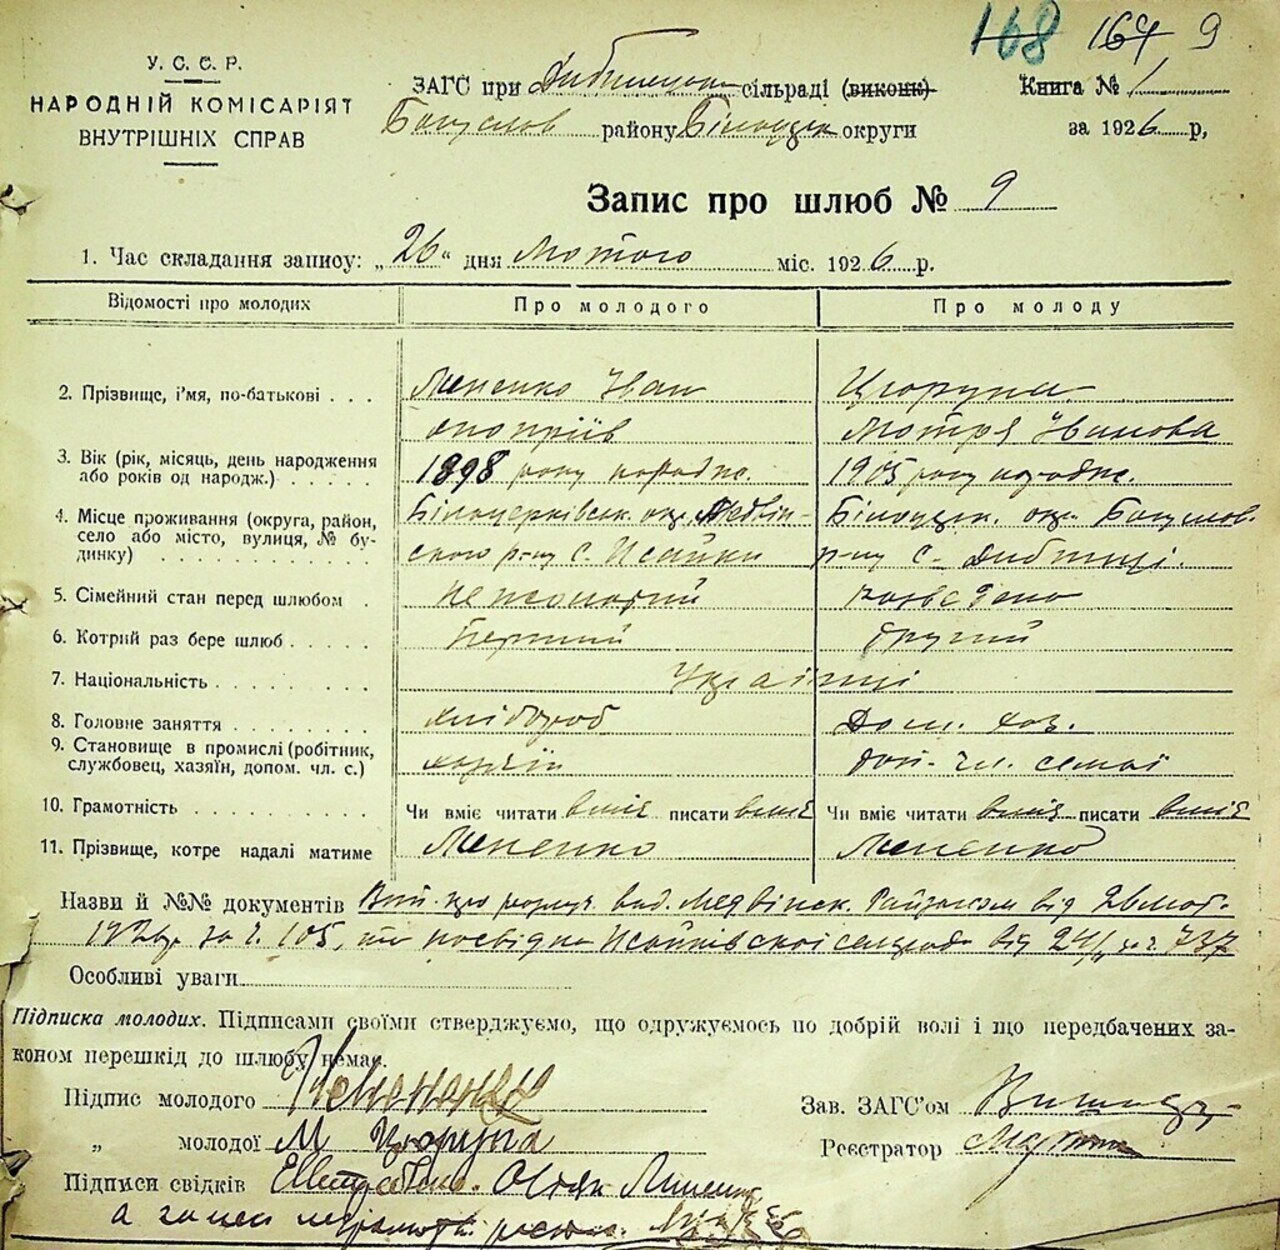 168 164 9
У. С. С. Р.
НАРОДНІЙ КОМІСАРІЯТ
ВНУТРІШНІХ СПРАВ
ЗАГС при сільраді (виконк)
Богуслов району Білоцерк округи
Книга № 1
за 1926 р,
Запис про шлюб № 9
1. Час складання запису: „26“ дня Лютого міс. 1926 р.
Відомості про молодих Про молодого Про молоду
2. Прізвище, і'мя, по-батькові . . . Іван Цюрупа
Мотря Іванова
3. Вік (рік, місяць, день народження або років од народж.) . . . . . 1898 року народж. 1905 року народж.
4. Місце проживання (округа, район, село або місто, вулиця, № будинку) . . . . . . . . . . Білоцерківськ. окр. Медвін- Білоцерк. окр. Богуслов.
ского р-ну с. Исайки р-ну с. Дибинці.
5. Сімейний стан перед шлюбом . Нежонатий розведена
6. Котрий раз бере шлюб . . . . . Перший другий
7. Національність . . . . . . . . . Українці
8. Головне заняття . . . . . . . . хлібороб Дом. хоз.
9. Становище в промислі (робітник, службовец, хазяїн, допом. чл. с.) хазяїн доп. чл. семьі
10. Грамотність . . . . . . . . . . Чи вміє читати вміє писати вміє Чи вміє читати вміє писати вміє
11. Прізвище, котре надалі матиме
Назви й №№ документів від Медвінск. від
за ч. 105, та посвідка Исайківскої сельради від 24/ за ч. 737
Особливі уваги
Підписка молодих. Підписами своїми стверджуємо, що одружуємось по добрій волі і що передбачених за-
коном перешкід до шлюбу немає.
Підпис молодого
Зав. ЗАГС'ом
„ молодої М Цюрупа
Реєстратор
Підписи свідків